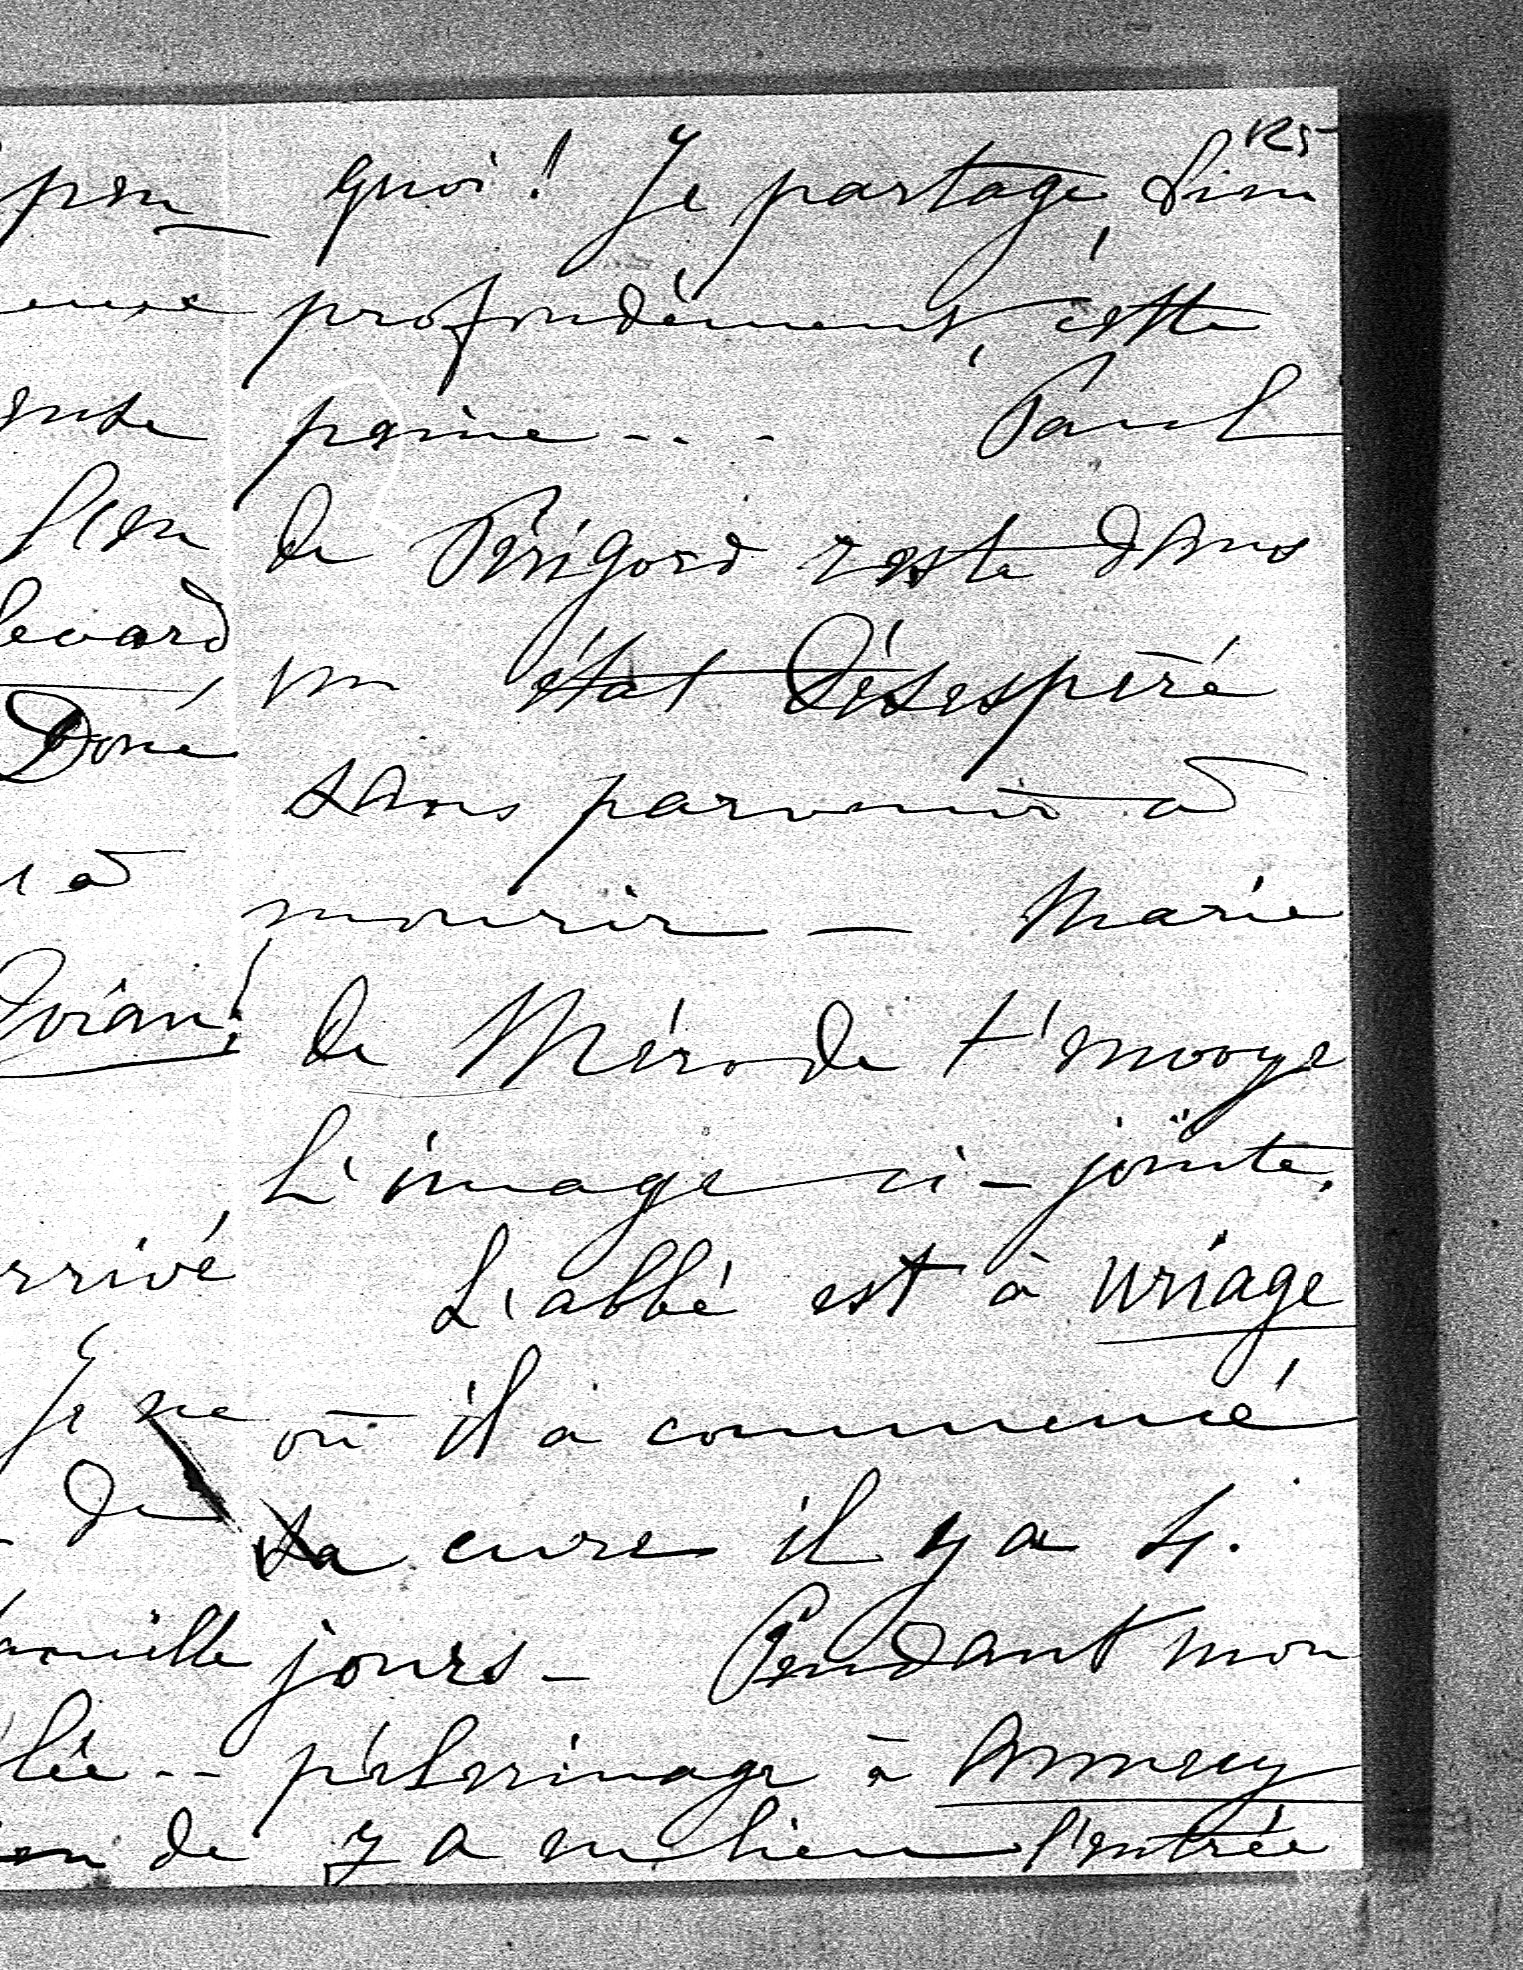 125
quoi ! Je partage bien
profondément, cette
peine - - - Paul
de Périgord reste dans
un état désespéré
sans parvenir à
mourir — Marie
de Mérode t'envoye
l'image ci-jointe.
L'abbé est à Uriage
où il a commencé
sa cure il y a 4.
jours - Pendant mon
pélerinage à Annecy
y a eu lieu l'entrée
peu
levard
Doré
à
rrivé
Je ne
de
famille
de